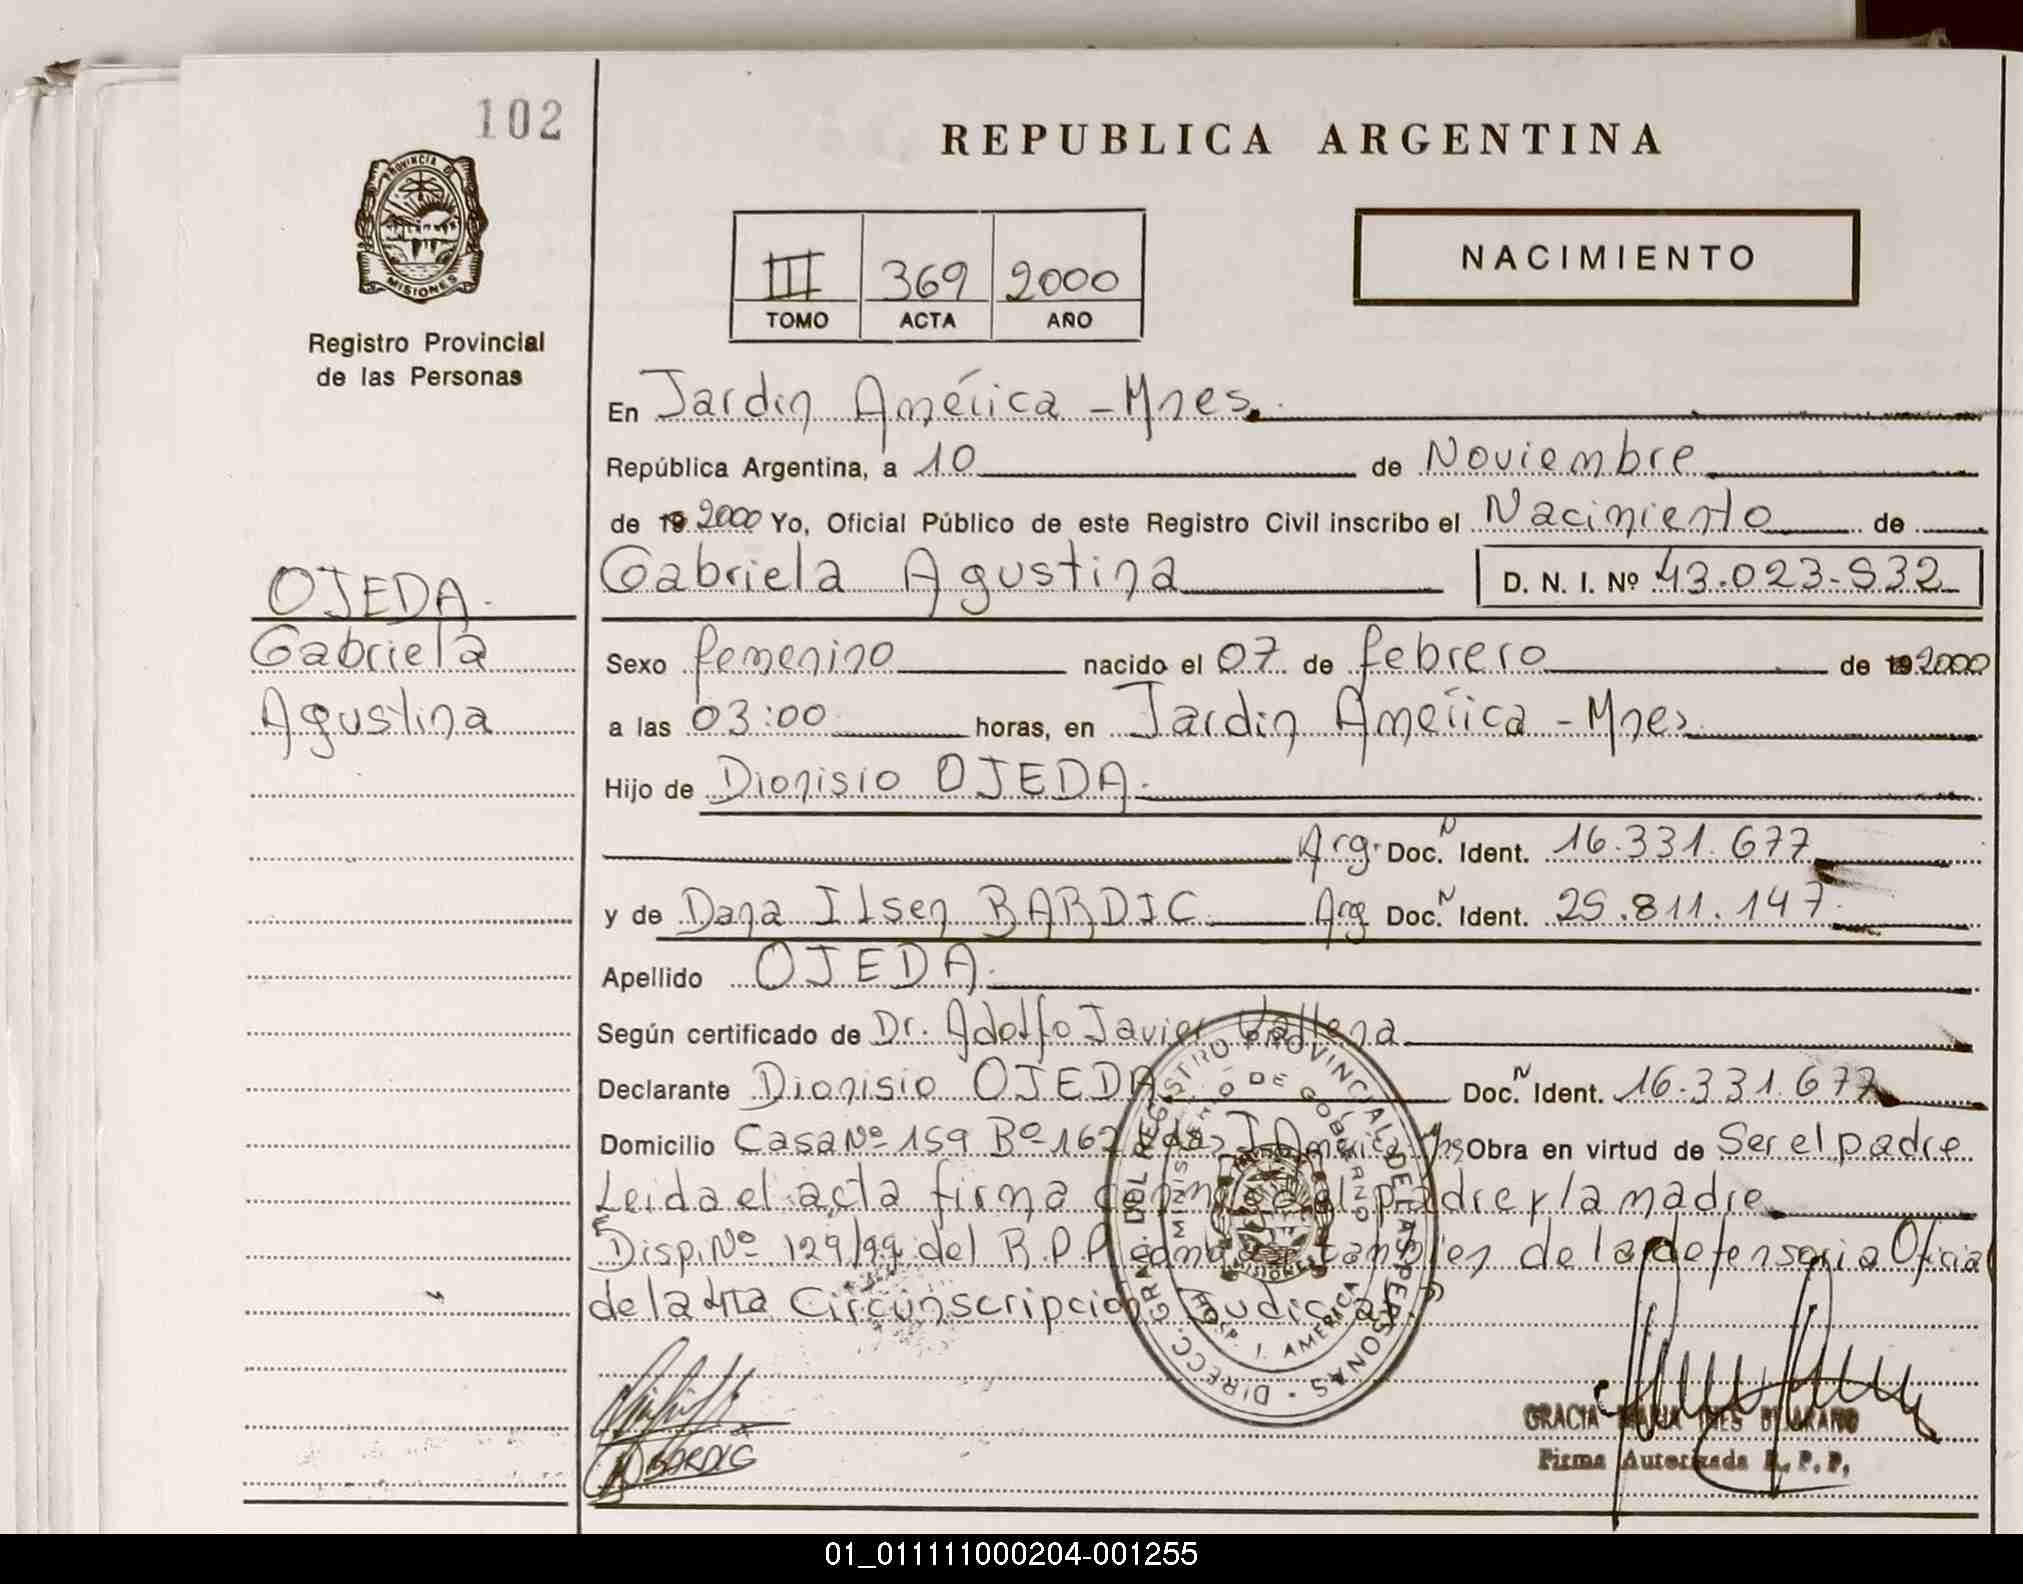 102
PROVINCIA DE
MISIONES
Registro Provincial
de las Personas
OJEDA.
Gabriela
Agustina
REPUBLICA ARGENTINA
III 369 2000
TOMO ACTA AÑO
NACIMIENTO
En Jardin América - Mnes.
República Argentina, a 10 de Noviembre
de 19 2000 Yo, Oficial Público de este Registro Civil inscribo el Nacimiento de
Gabriela Agustina D. N. I. Nº 43.023.532
Sexo femenino nacido el 07 de febrero de 19 2000
a las 03:00 horas, en Jardin América - Mnes
Hijo de Dionisio OJEDA.
Arg. Doc. N Ident. 16.331.677
y de Dana Ilsen BARDIC Arg Doc. N Ident. 25.811.147.
Apellido OJEDA.
Según certificado de Dr. Adolfo Javier Vallena
Declarante Dionisio OJEDA Doc. N Ident. 16.331.677
Domicilio Casa Nº 159 Bº 162 Vdas J América Mnes Obra en virtud de Ser el padre
Leida el acta firma conmigo el padre y la madre
Disp. Nº 129/99 del R.P.P como asi tambien de la defensoria Oficial
de la 4ta Circunscripcion Judicial
DIRECC. GRAL. DEL REGISTRO PROVINCIAL DE LAS PERSONAS
MINISTERIO DE GOBIERNO
MISIONES
HOSP. J. AMERICA
BARDIC
GRACIA MARIA INES
Firma Autorizada R. P. P.
01_011111000204-001255